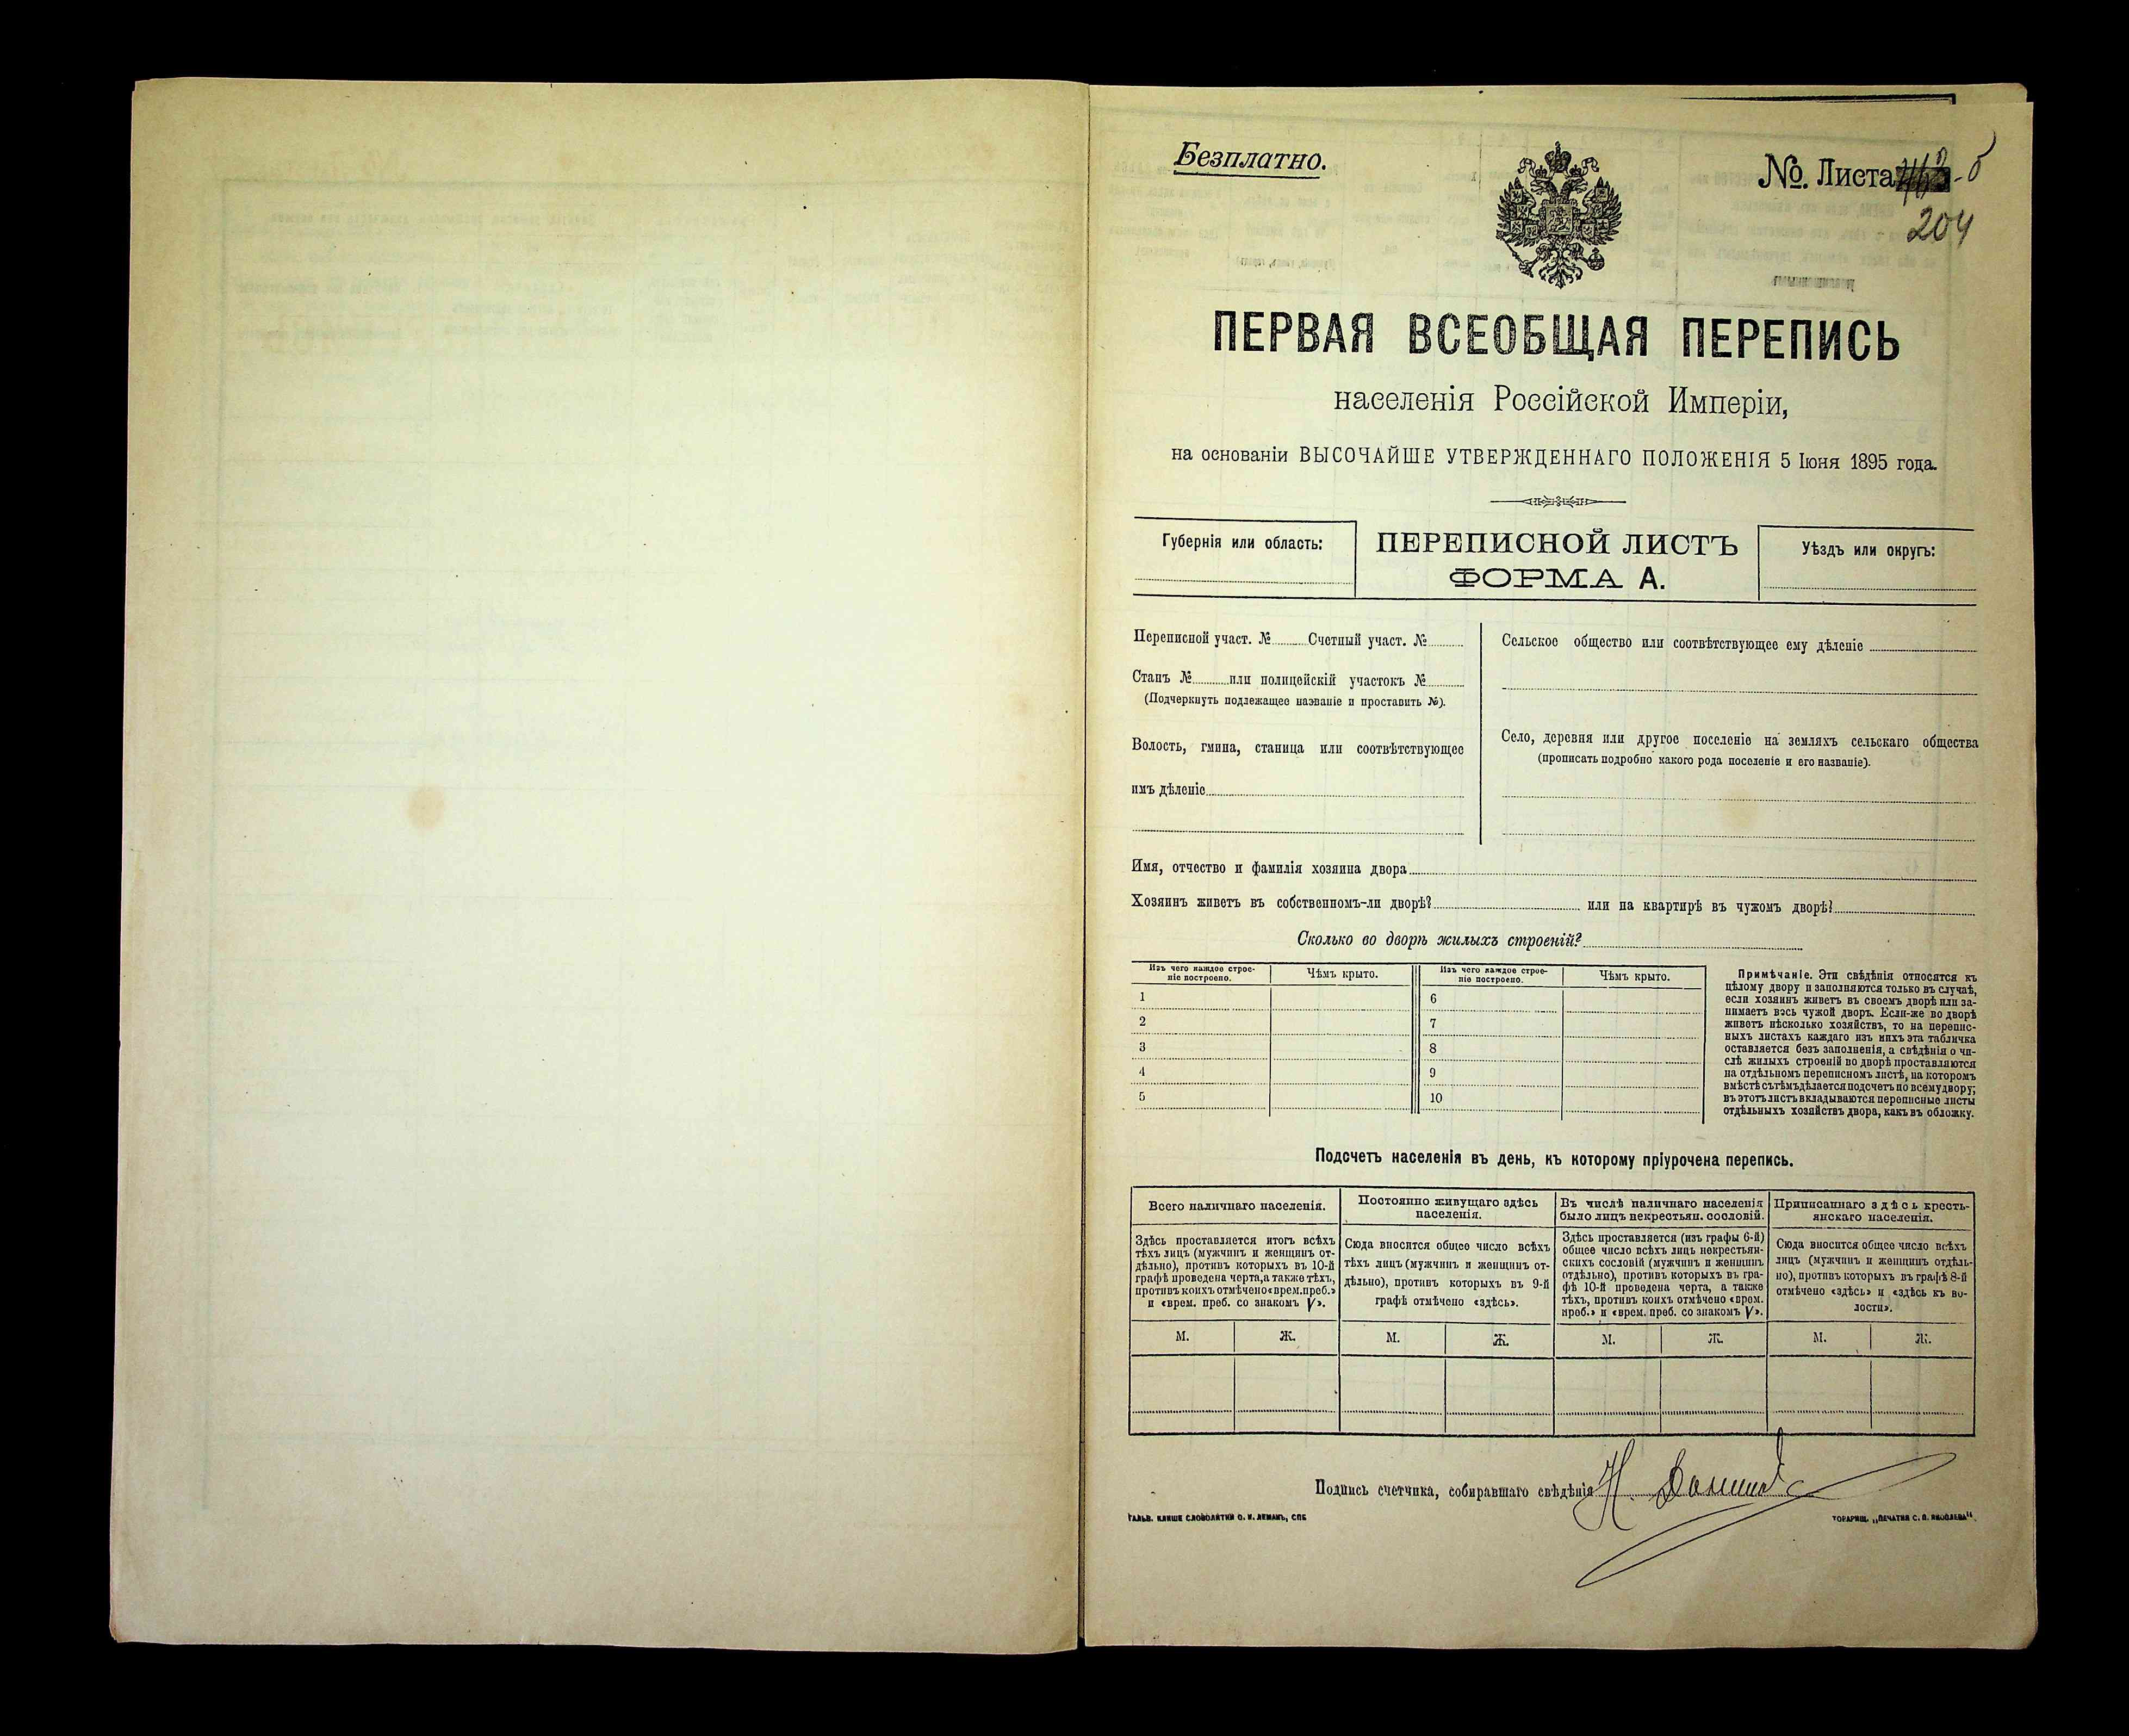 Безплатно.
№. Листа
204
ПЕРВАЯ ВСЕОБЩАЯ ПЕРЕПИСЬ
населенія Россійской Имперіи,
на основаніи ВЫСОЧАЙШЕ УТВЕРЖДЕННАГО ПОЛОЖЕНІЯ 5 Іюня 1895 года.
Губернія или область:
ПЕРЕПИСНОЙ ЛИСТЪ
ФОРМА А.
Уѣздъ или округъ:
Переписной участ. № Счетный участ. №
Станъ № или полицейскій участокъ №
(Подчеркнуть подлежащее названіе и проставить №).
Волость, гмина, станица или соотвѣтствующее
имъ дѣленіе
Сельское общество или соотвѣтствующее ему дѣленіе
Село, деревня или другое поселеніе на земляхъ сельскаго общества
(прописать подробно какого рода поселеніе и его названіе).
Имя, отчество и фамилія хозяина двора
Хозяинъ живетъ въ собственномъ-ли дворѣ? или на квартирѣ въ чужомъ дворѣ?
Сколько во дворѣ жилыхъ строеній?
Изъ чего каждое строе-
ніе построено.
Чѣмъ крыто.
Изъ чего каждое строе-
ніе построено.
Чѣмъ крыто.
1
2
3
4
5
6
7
8
9
10
Примѣчаніе. Эти свѣдѣнія относятся къ
цѣлому двору и заполняются только въ случаѣ,
если хозяинъ живетъ въ своемъ дворѣ или за-
нимаетъ весь чужой дворъ. Если-же во дворѣ
живетъ нѣсколько хозяйствъ, то на перепис-
ныхъ листахъ каждаго изъ нихъ эта табличка
оставляется безъ заполненія, а свѣдѣнія о чи-
слѣ жилыхъ строеній во дворѣ проставляются
на отдѣльномъ переписномъ листѣ, на которомъ
вмѣстѣ съ тѣмъ дѣлается подсчетъ по всему двору;
въ этотъ листъ вкладываются переписные листы
отдѣльныхъ хозяйствъ двора, какъ въ обложку.
Подсчетъ населенія въ день, къ которому пріурочена перепись.
Всего наличнаго населенія.
Здѣсь проставляется итогъ всѣхъ
тѣхъ лицъ (мужчинъ и женщинъ от-
дѣльно), противъ которыхъ въ 10-й
графѣ проведена черта, а также тѣхъ,
противъ коихъ отмѣчено «врем. преб.»
и «врем. преб. со знакомъ V».
М. Ж.
Постоянно живущаго здѣсь
населенія.
Сюда вносится общее число всѣхъ
тѣхъ лицъ (мужчинъ и женщинъ от-
дѣльно), противъ которыхъ въ 9-й
графѣ отмѣчено «здѣсь».
М. Ж.
Въ числѣ наличнаго населенія
было лицъ некрестьян. сословій.
Здѣсь проставляется (изъ графы 6-й)
общее число всѣхъ лицъ некрестьян-
скихъ сословій (мужчинъ и женщинъ
отдѣльно), противъ которыхъ въ гра-
фѣ 10-й проведена черта, а также
тѣхъ, противъ коихъ отмѣчено «врем.
преб.» и «врем. преб. со знакомъ V».
М. Ж.
Приписаннаго здѣсь кресть-
янскаго населенія.
Сюда вносится общее число всѣхъ
лицъ (мужчинъ и женщинъ отдѣль-
но), противъ которыхъ въ графѣ 8-й
отмѣчено «здѣсь» и «здѣсь къ во-
лости».
М. Ж.
Подпись счетчика, собиравшаго свѣдѣнія Н.
ГАЛЬВ. КЛИШЕ СЛОВОЛИТНИ О. И. ЛЕМАНЪ, СПБ
ТОВАРИЩ. „ПЕЧАТНЯ С. П. ЯКОВЛЕВА“.